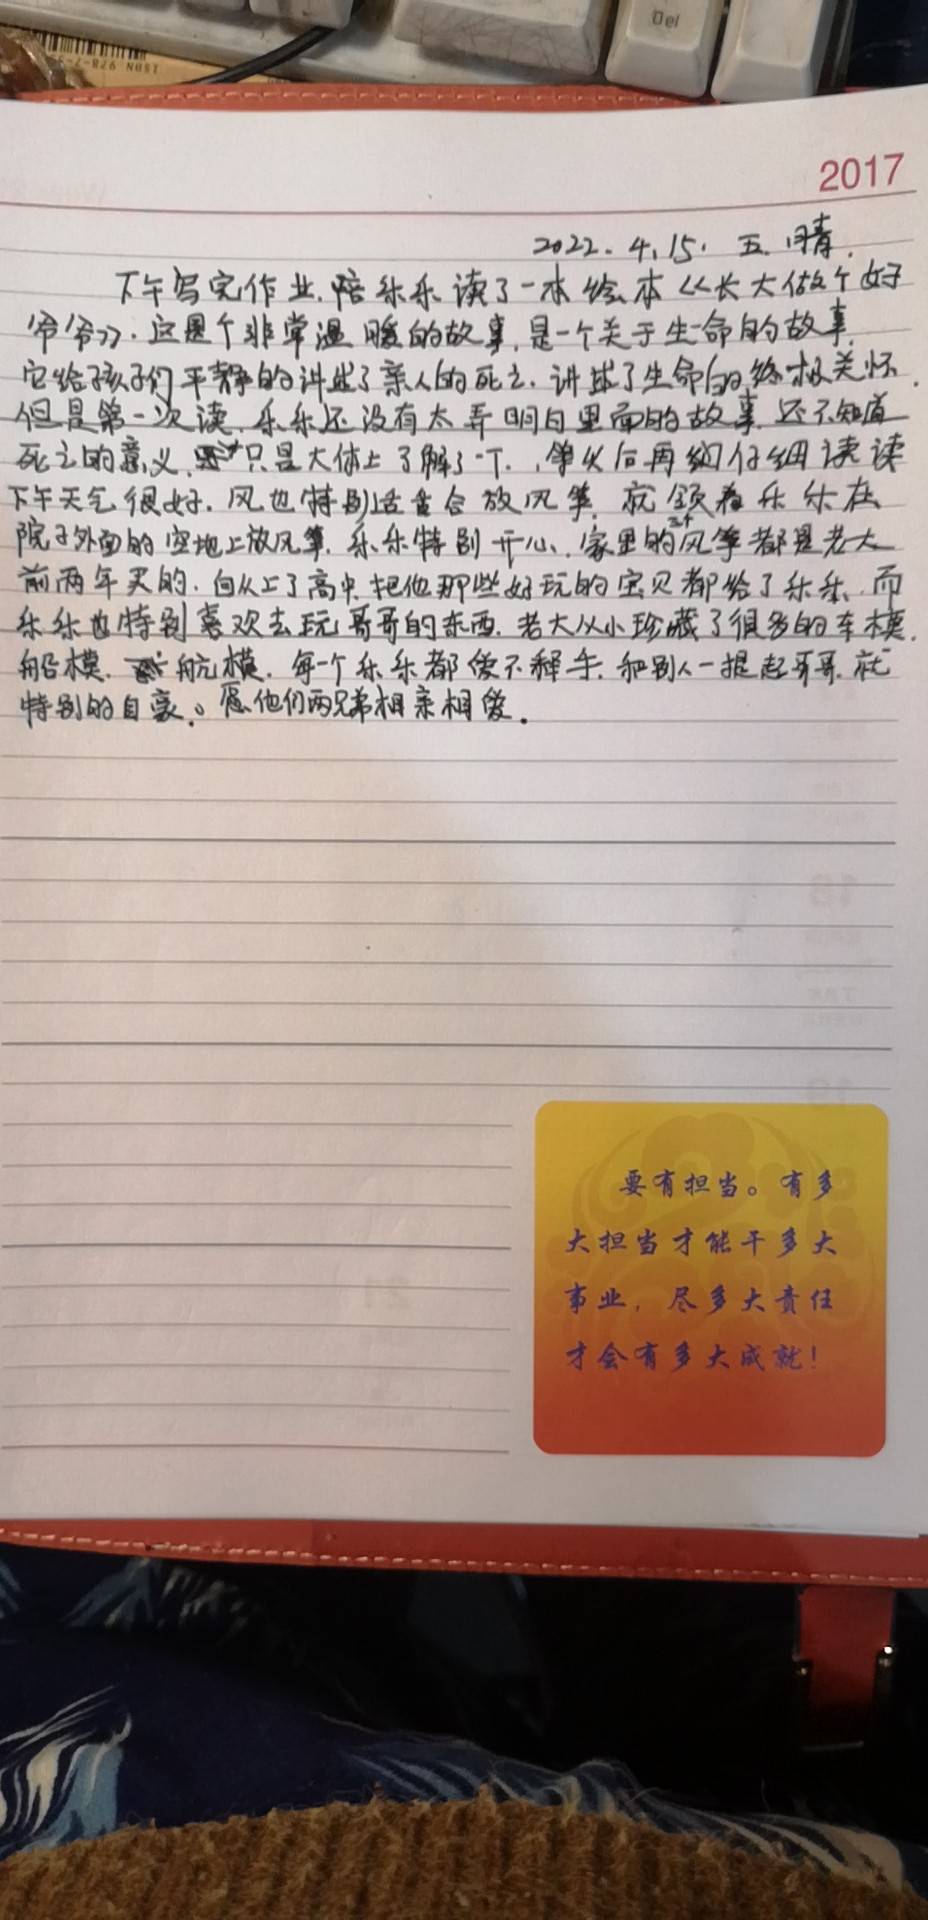 Del
ISBN 978-7-5
2017
2022.4.15. 五.晴.
下午写完作业.陪乐乐读了一本绘本《长大做个好
爷爷》.这是个非常温暖的故事.是一个关于生命的故事.
它给孩子们平静的讲述了亲人的死亡.讲述了生命的终极关怀.
但是第一次读.乐乐还没有太弄明白里面的故事.还不知道
死亡的意义.只是大体上了解了一下.等以后再细仔细读读
下午天气很好.风也特别适合放风筝.就领着乐乐在
院子外面的空地上放风筝.乐乐特别开心.家里的三个风筝都是老大
前两年买的.自从上了高中.把他那些好玩的宝贝都给了乐乐.而
乐乐也特别喜欢去玩哥哥的东西.老大从小珍藏了很多的车模.
船模.航模.每一个乐乐都爱不释手.和别人一提起哥哥.就
特别的自豪。愿他们两兄弟相亲相爱.
要有担当。有多
大担当才能干多大
事业，尽多大责任
才会有多大成就！